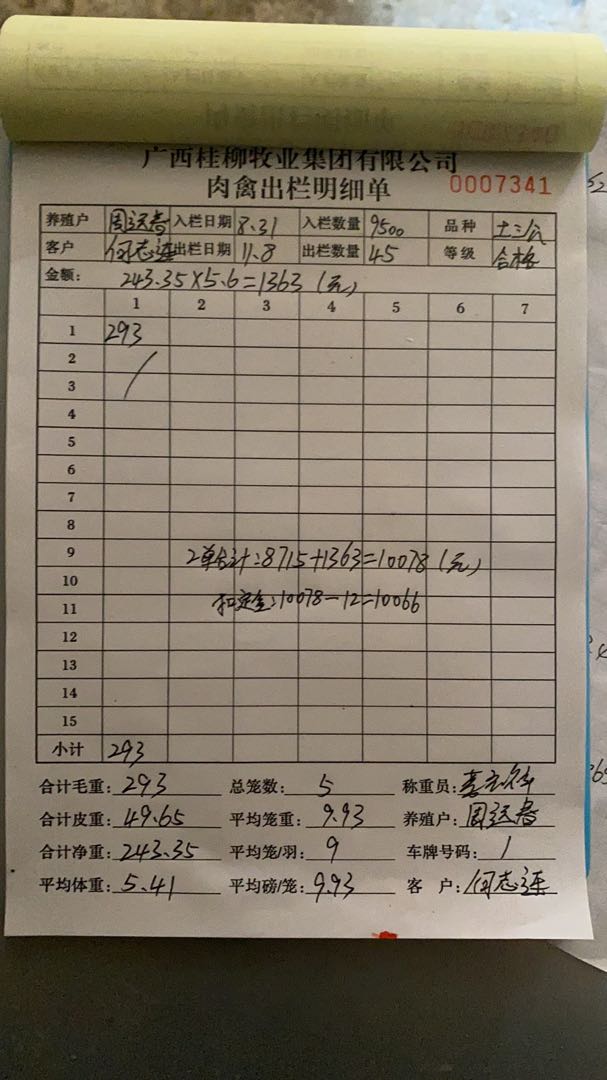 广西桂柳牧业集团有限公司
肉禽出栏明细单 0007341
养殖户 入栏日期 8.31 入栏数量 9500 品种 土三公
客户 何志连 出栏日期 11.8 出栏数量 45 等级 合格
金额: 243.35×5.6=1363(元)
1 2 3 4 5 6 7
1 293
2
3
4
5
6
7
8
9 2单合计:8715+1363=10078(元)
10
11 扣定金:10078-12=10066
12
13
14
15
小计 293
合计毛重: 293 总笼数: 5 称重员:
合计皮重: 49.65 平均笼重: 9.93 养殖户:
合计净重: 243.35 平均笼/羽: 9 车牌号码: 1
平均体重: 5.41 平均磅/笼: 9.93 客 户: 何志连